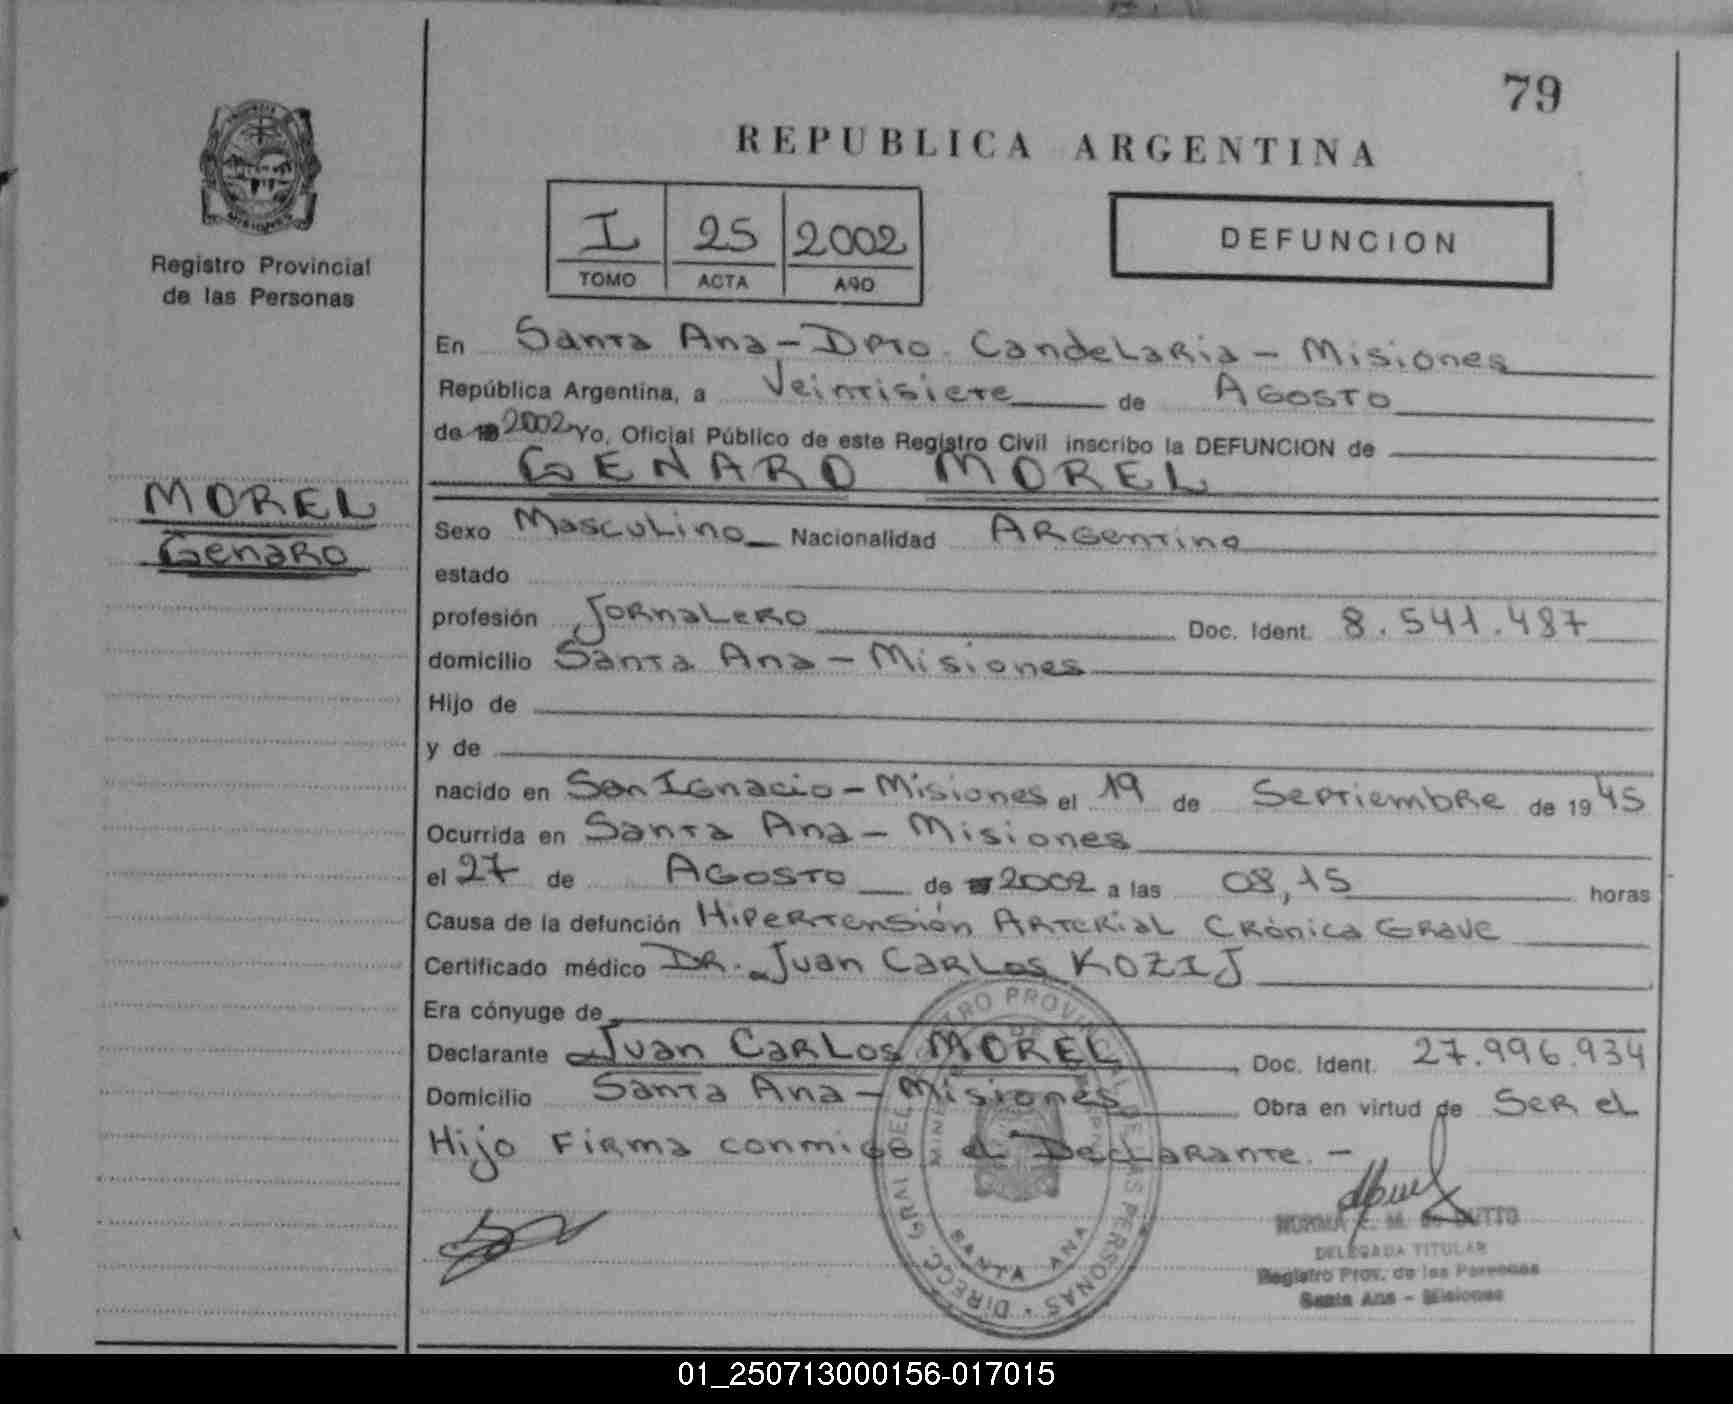 79
REPUBLICA ARGENTINA
MISIONES
Registro Provincial
de las Personas
I 25 2002
TOMO ACTA AÑO
DEFUNCION
En Santa Ana - Dpto. Candelaria - Misiones
República Argentina, a Veintisiete de Agosto
de 19 2002 Yo, Oficial Público de este Registro Civil inscribo la DEFUNCION de
GENARO MOREL
MOREL
Genaro
Sexo Masculino Nacionalidad Argentino
estado
profesión Jornalero Doc. Ident. 8.541.487
domicilio Santa Ana - Misiones
Hijo de
y de
nacido en San Ignacio - Misiones el 19 de Septiembre de 1945
Ocurrida en Santa Ana - Misiones
el 27 de Agosto de 2002 a las 08,15 horas
Causa de la defunción Hipertensión Arterial Crónica Grave
Certificado médico Dr. Juan Carlos KOZIJ
Era cónyuge de
Declarante Juan Carlos MOREL Doc. Ident. 27.996.934
Domicilio Santa Ana - Misiones Obra en virtud de Ser el
Hijo Firma conmigo el Declarante. -
SANTA ANA
DELEGADA TITULAR
Registro Prov. de las Personas
Santa Ana - Misiones
01_250713000156-017015